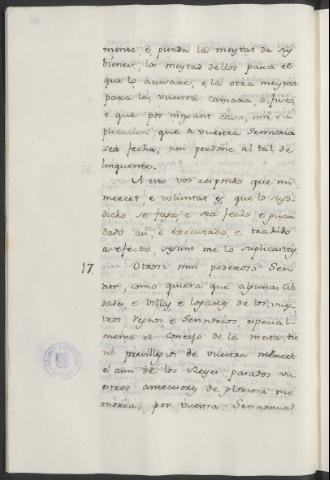 mente, é pierda la meytat de sus
bienes, la meytad dellos para el
que lo acusare, e la otra meytat
para la vuestra camara, ó fisco,
e que por ningunt caso, nin su
plicacion que a vuestra Sennoria
sea fecha, non perdone al tal de
linquente.
A esto vos respondo que mi
mercet, e voluntat es, que lo suso
dicho se faga, e sea fecho, e guar
dado asi, e executado, e trahido
a efecto segunt me lo suplicastes.
17. Otrosi mui poderoso Sen
nor, como quiera que algunas cib
dades, e Villas, e logares de los vues
tros regnos, e Sennorios, especial
mente el concejo de la mesta, tie
ne previllejos de vuestra mercet
e aun de los Reyes pasados vu
estros antecesores de gloriosa me
moria, por vuestra Sennoria